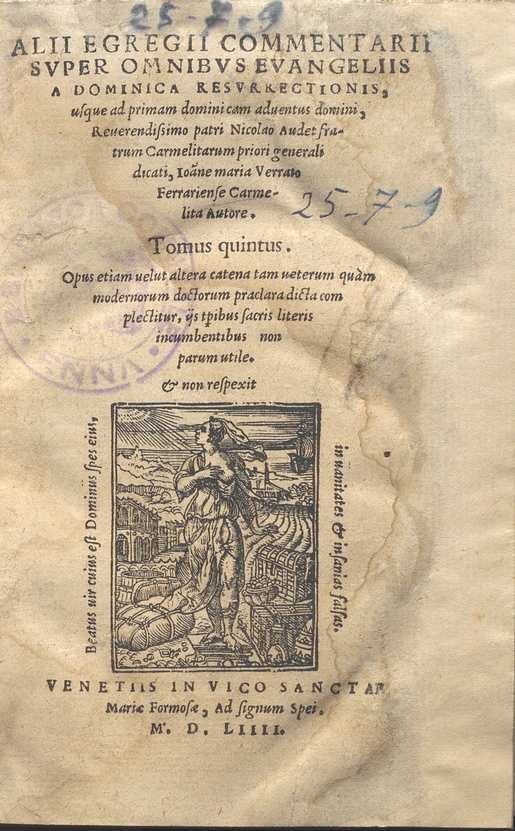 25-7-9
ALII EGREGII COMMENTARII
SVPER OMNIBVS EVANGELIIS
A DOMINICA RESVRRECTIONIS,
usque ad primam dominicam adventus domini,
Reuerendißimo patri Nicolao Audet fra-
trum Carmelitarum priori generali
dicati, Ioāne maria Verrato
Ferrariense Carme-
lita Autore.
25-7-9
Tomus quintus.
Opus etiam uelut altera catena tam ueterum quàm
modernorum doctorum praclara dicta com
plectitur, ijs tpibus sacris literis
incumbentibus non
parum utile.
& non respexit
Beatus uir cuius est Dominus spes eius,
in uanitates & insanias falsas.
VENETIIS IN VICO SANCTAE
Mariæ Formosæ, Ad signum Spei.
M. D. LIIII.